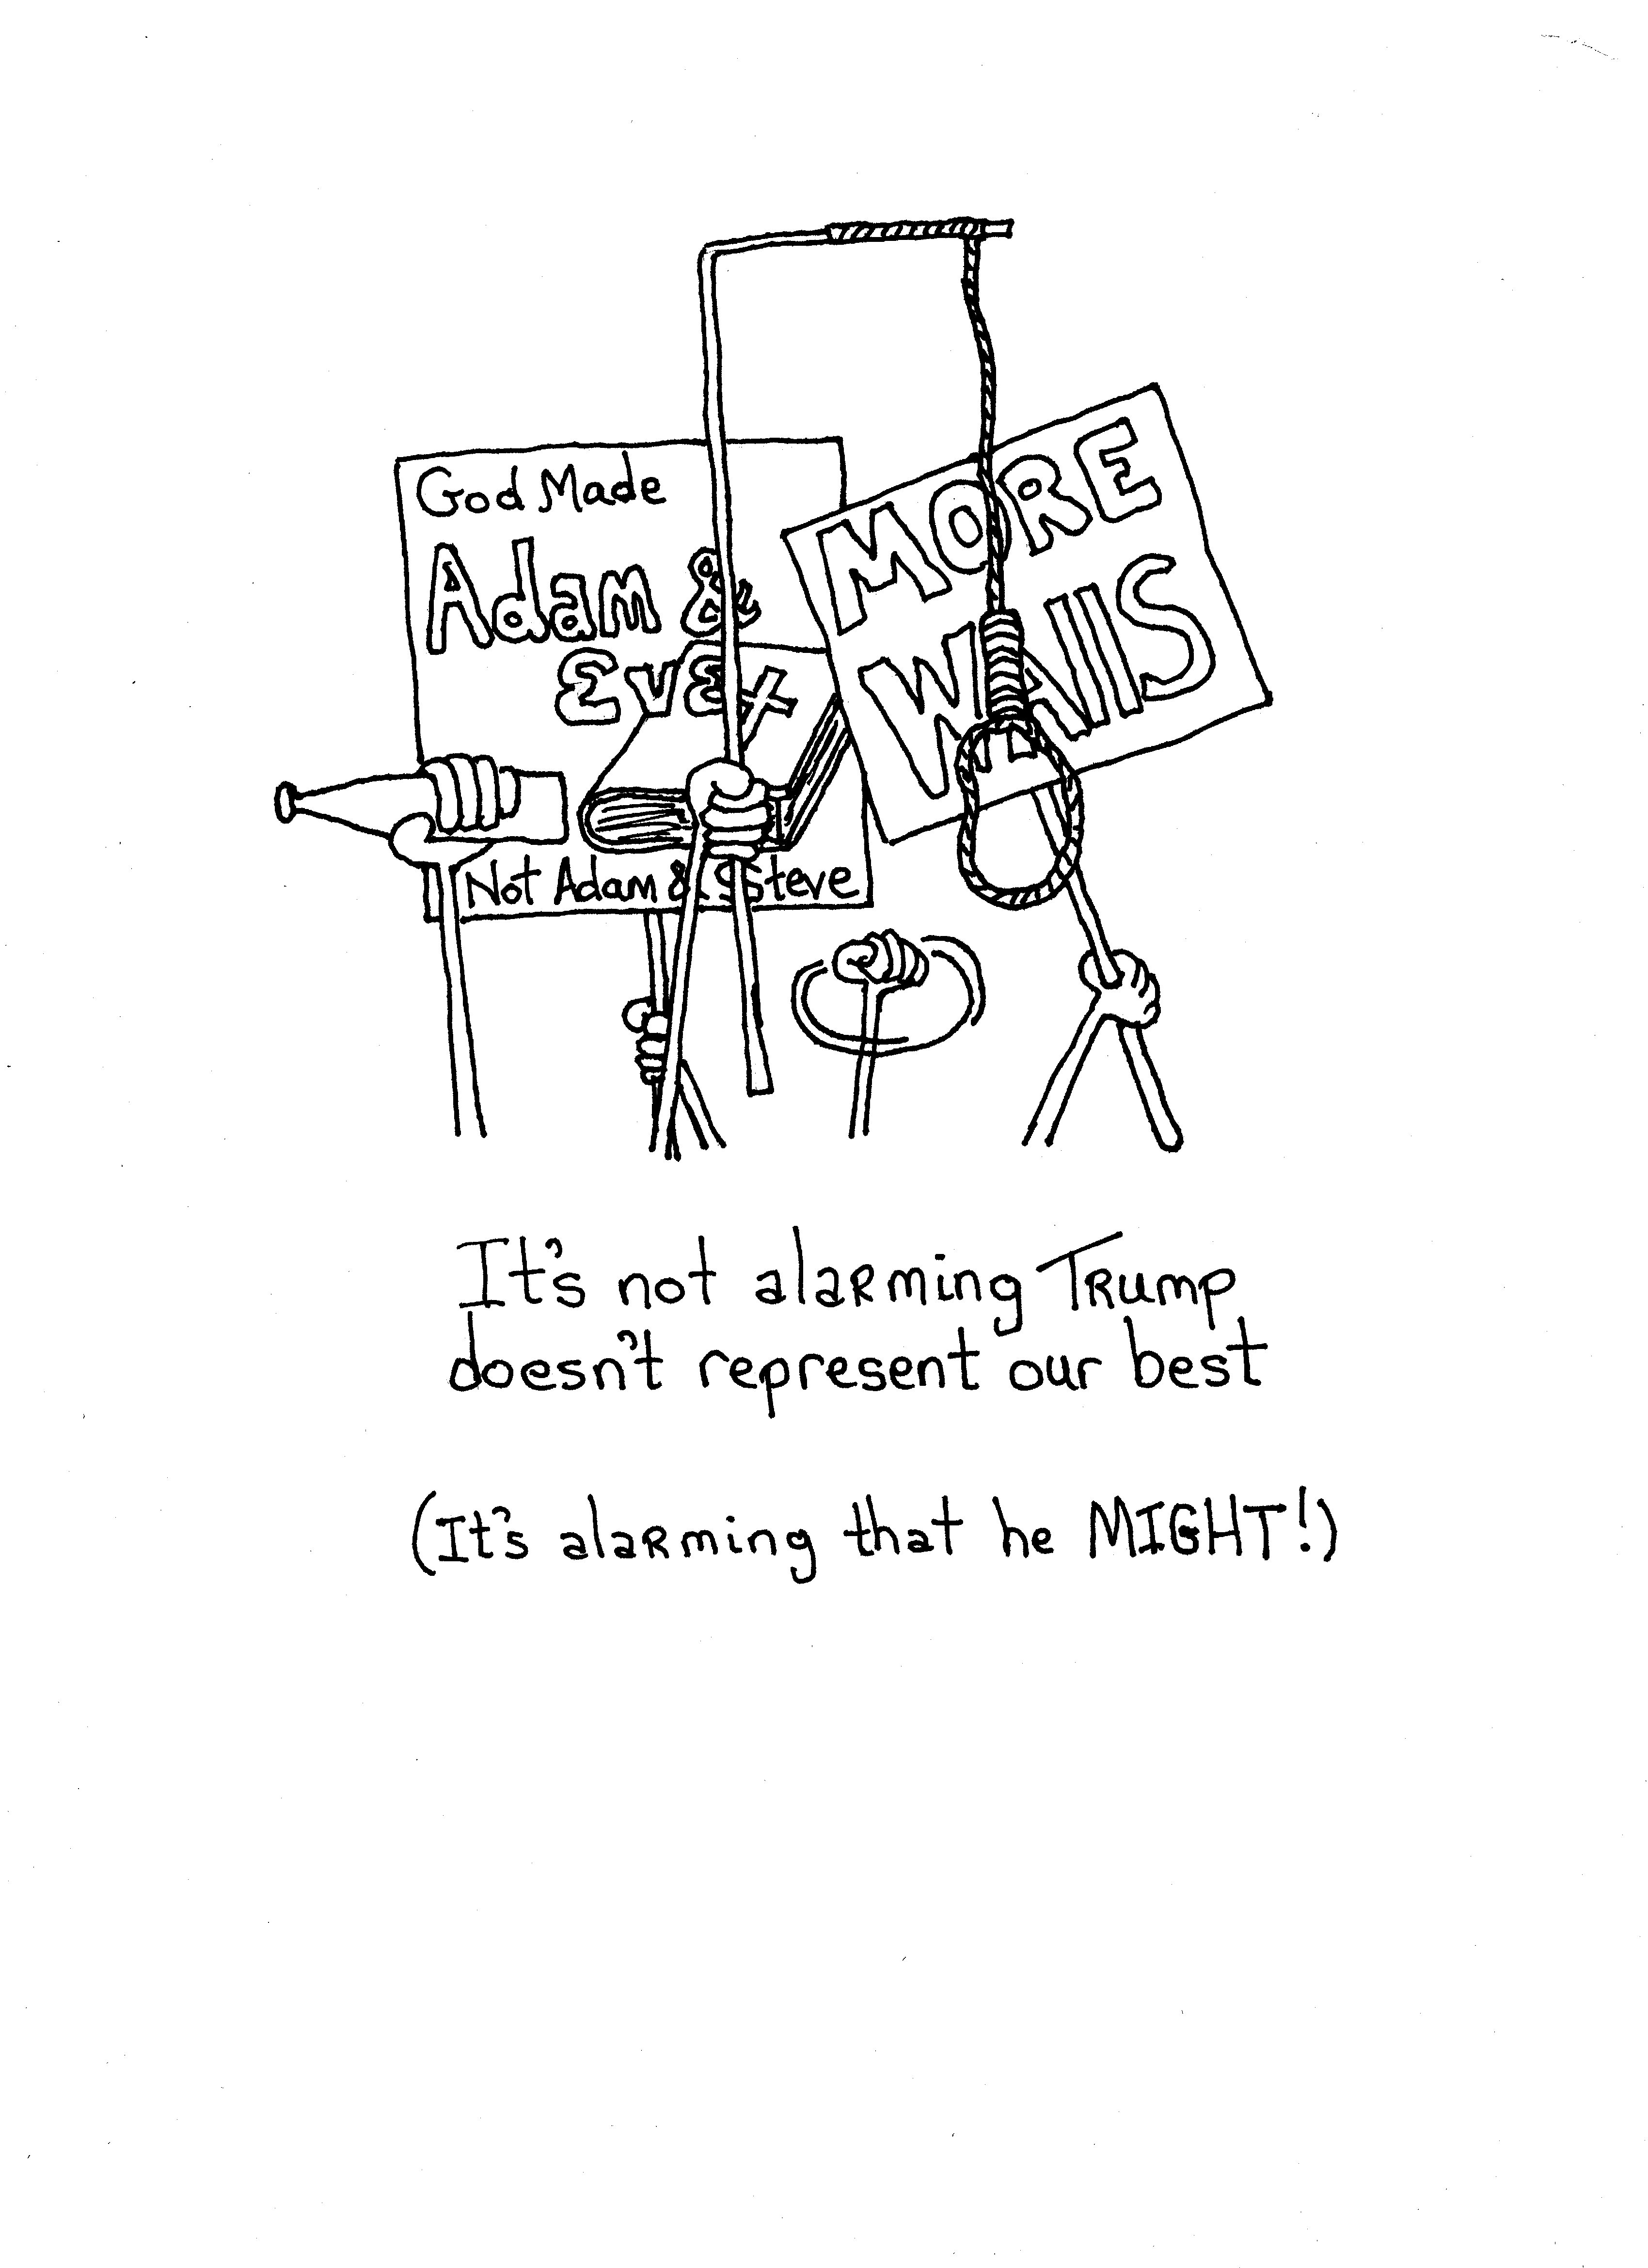 God Made
Adam &
Eve
Not Adam & Steve
MORE
WAllS
It's not alarming Trump
doesn't represent our best
(It's alarming that he MIGHT!)